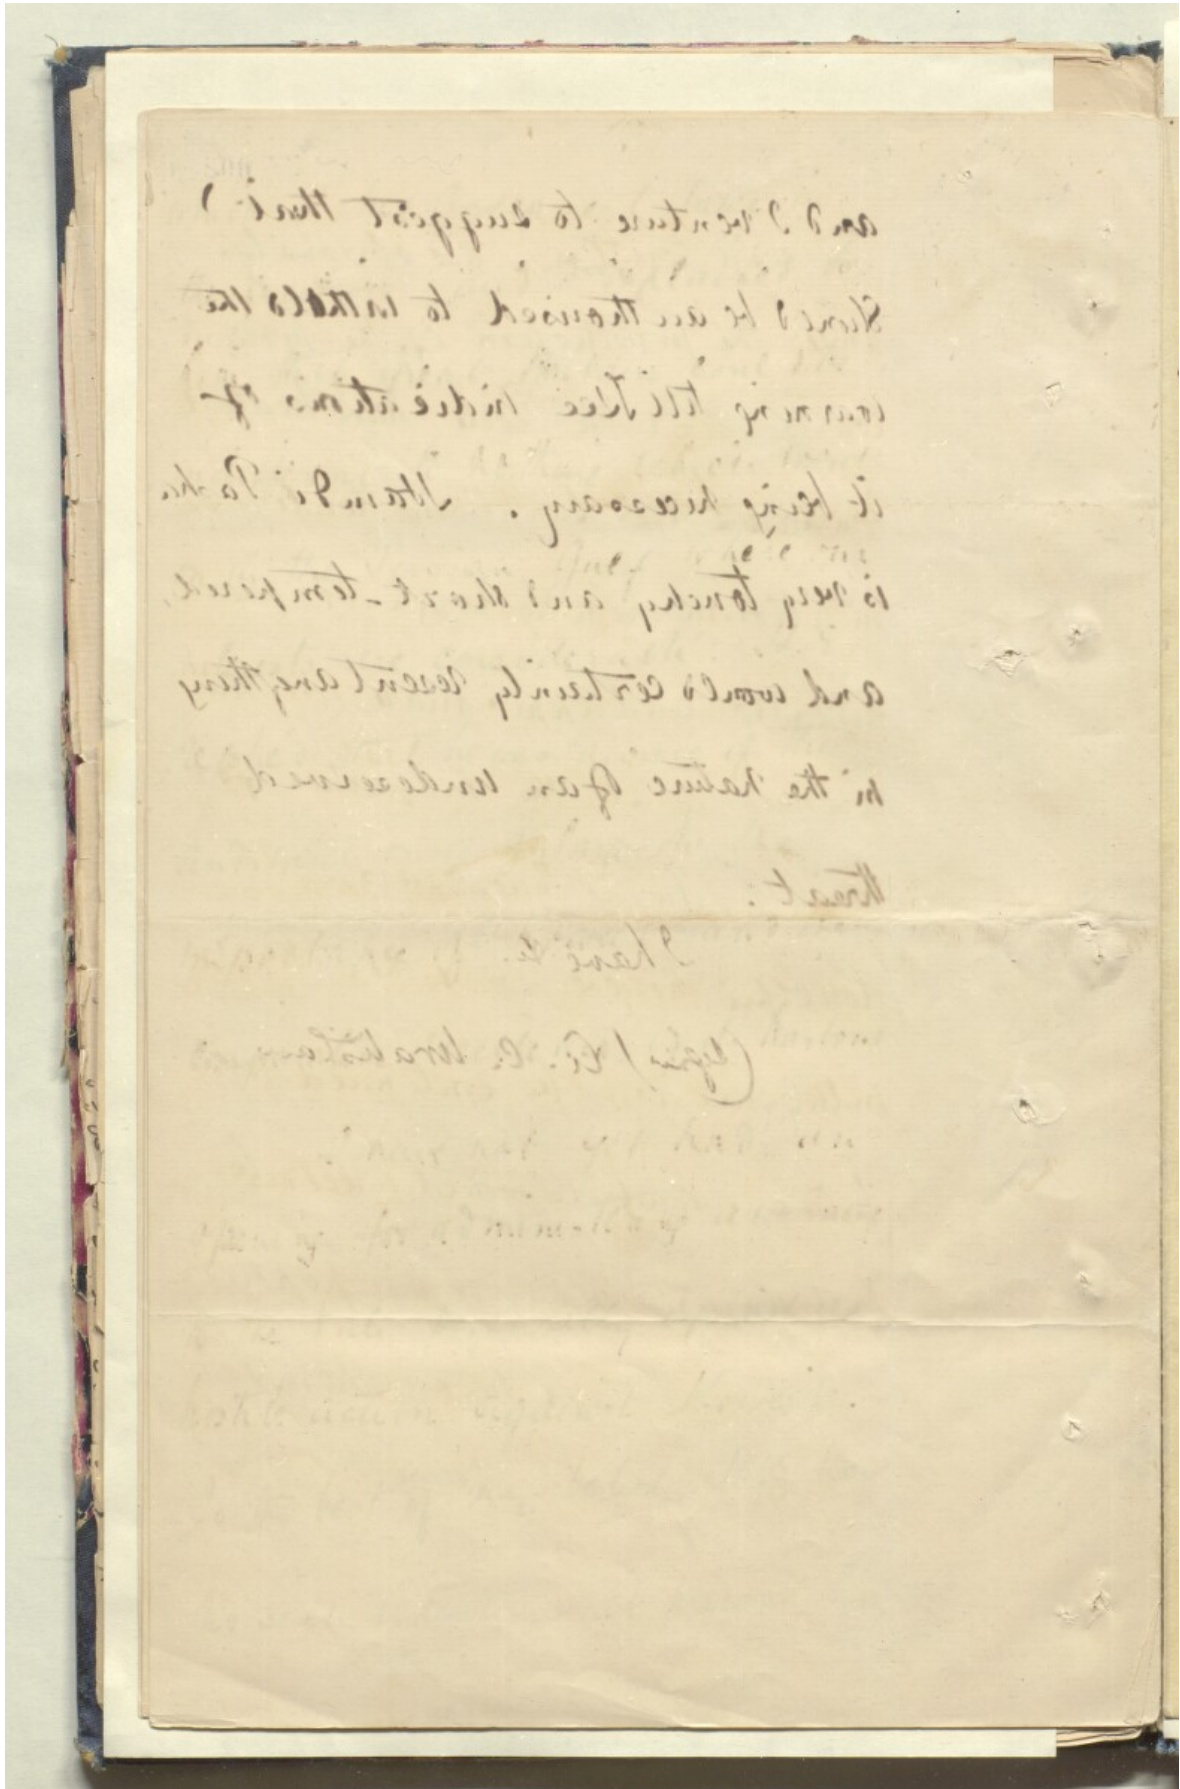 and I venture to suggest that I
should be authorised to withold the
warning till I see indications of
it being necessary. Hamdi Pasha
is very touchy and short-tempered,
and would certainly resent anything
in the nature of an undeserved
threat.
I have &c.
(Signed) A. C. Wratislaw